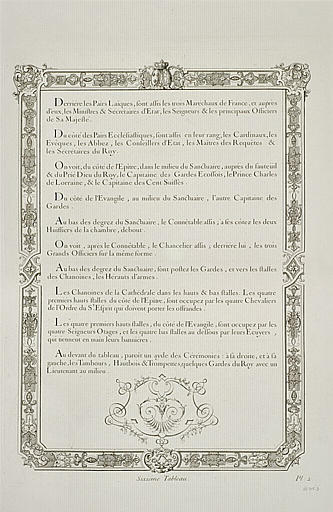 Derriere les Pairs Laiques, sont assis les trois Marechaux de France, et aupres
d'eux, les Ministres & Secretaires d'Etat, les Seigneurs & les principaux Officiers
de Sa Majesté.
Du côté des Pairs Ecclesiastiques, sont assis en leur rang, les Cardinaux, les
Evêques, les Abbez, les Conseillers d'Etat, les Maitres des Requêtes &
les Secretaires du Roy.
On voit, du côté de l'Epitre, dans le milieu du Sanctuaire, auprès du fauteuil
& du Prié Dieu du Roy, le Capitaine des Gardes Ecossois, le Prince Charles
de Lorraine, & le Capitaine des Cent Suisses.
Du côté de l'Evangile, au milieu du Sanctuaire, l'autre Capitaine des
Gardes.
Au bas des degrez du Sanctuaire, le Connétable assis; a ses côtez les deux
Huissiers de la chambre, debout.
On voit, après le Connétable, le Chancelier assis; derriere lui, les trois
Grands Officiers sur la même forme.
Au bas des degrez du Sanctuaire, sont postez les Gardes, et vers les stalles
des Chanoines, les Herauts d'armes.
Les Chanoines de la Cathedrale dans les hauts & bas stalles. Les quatre
premiers hauts stalles du côté de l'Epitre, sont occupez par les quatre Chevaliers
de l'Ordre du St. Esprit qui doivent porter les offrandes.
Les quatre premiers hauts stalles, du côté de l'Evangile, sont occupez par les
quatre Seigneurs Otages, et les quatre bas stalles au dessous par leurs Ecuyers,
qui tiennent en main leurs bannieres.
Au devant du tableau, paroit un ayde des Cérémonies: à sa droite, et à sa
gauche, les Tambours, Hautbois & Trompettes, quelques Gardes du Roy avec un
Lieutenant au milieu.
Sixieme Tableau
Pl. 2